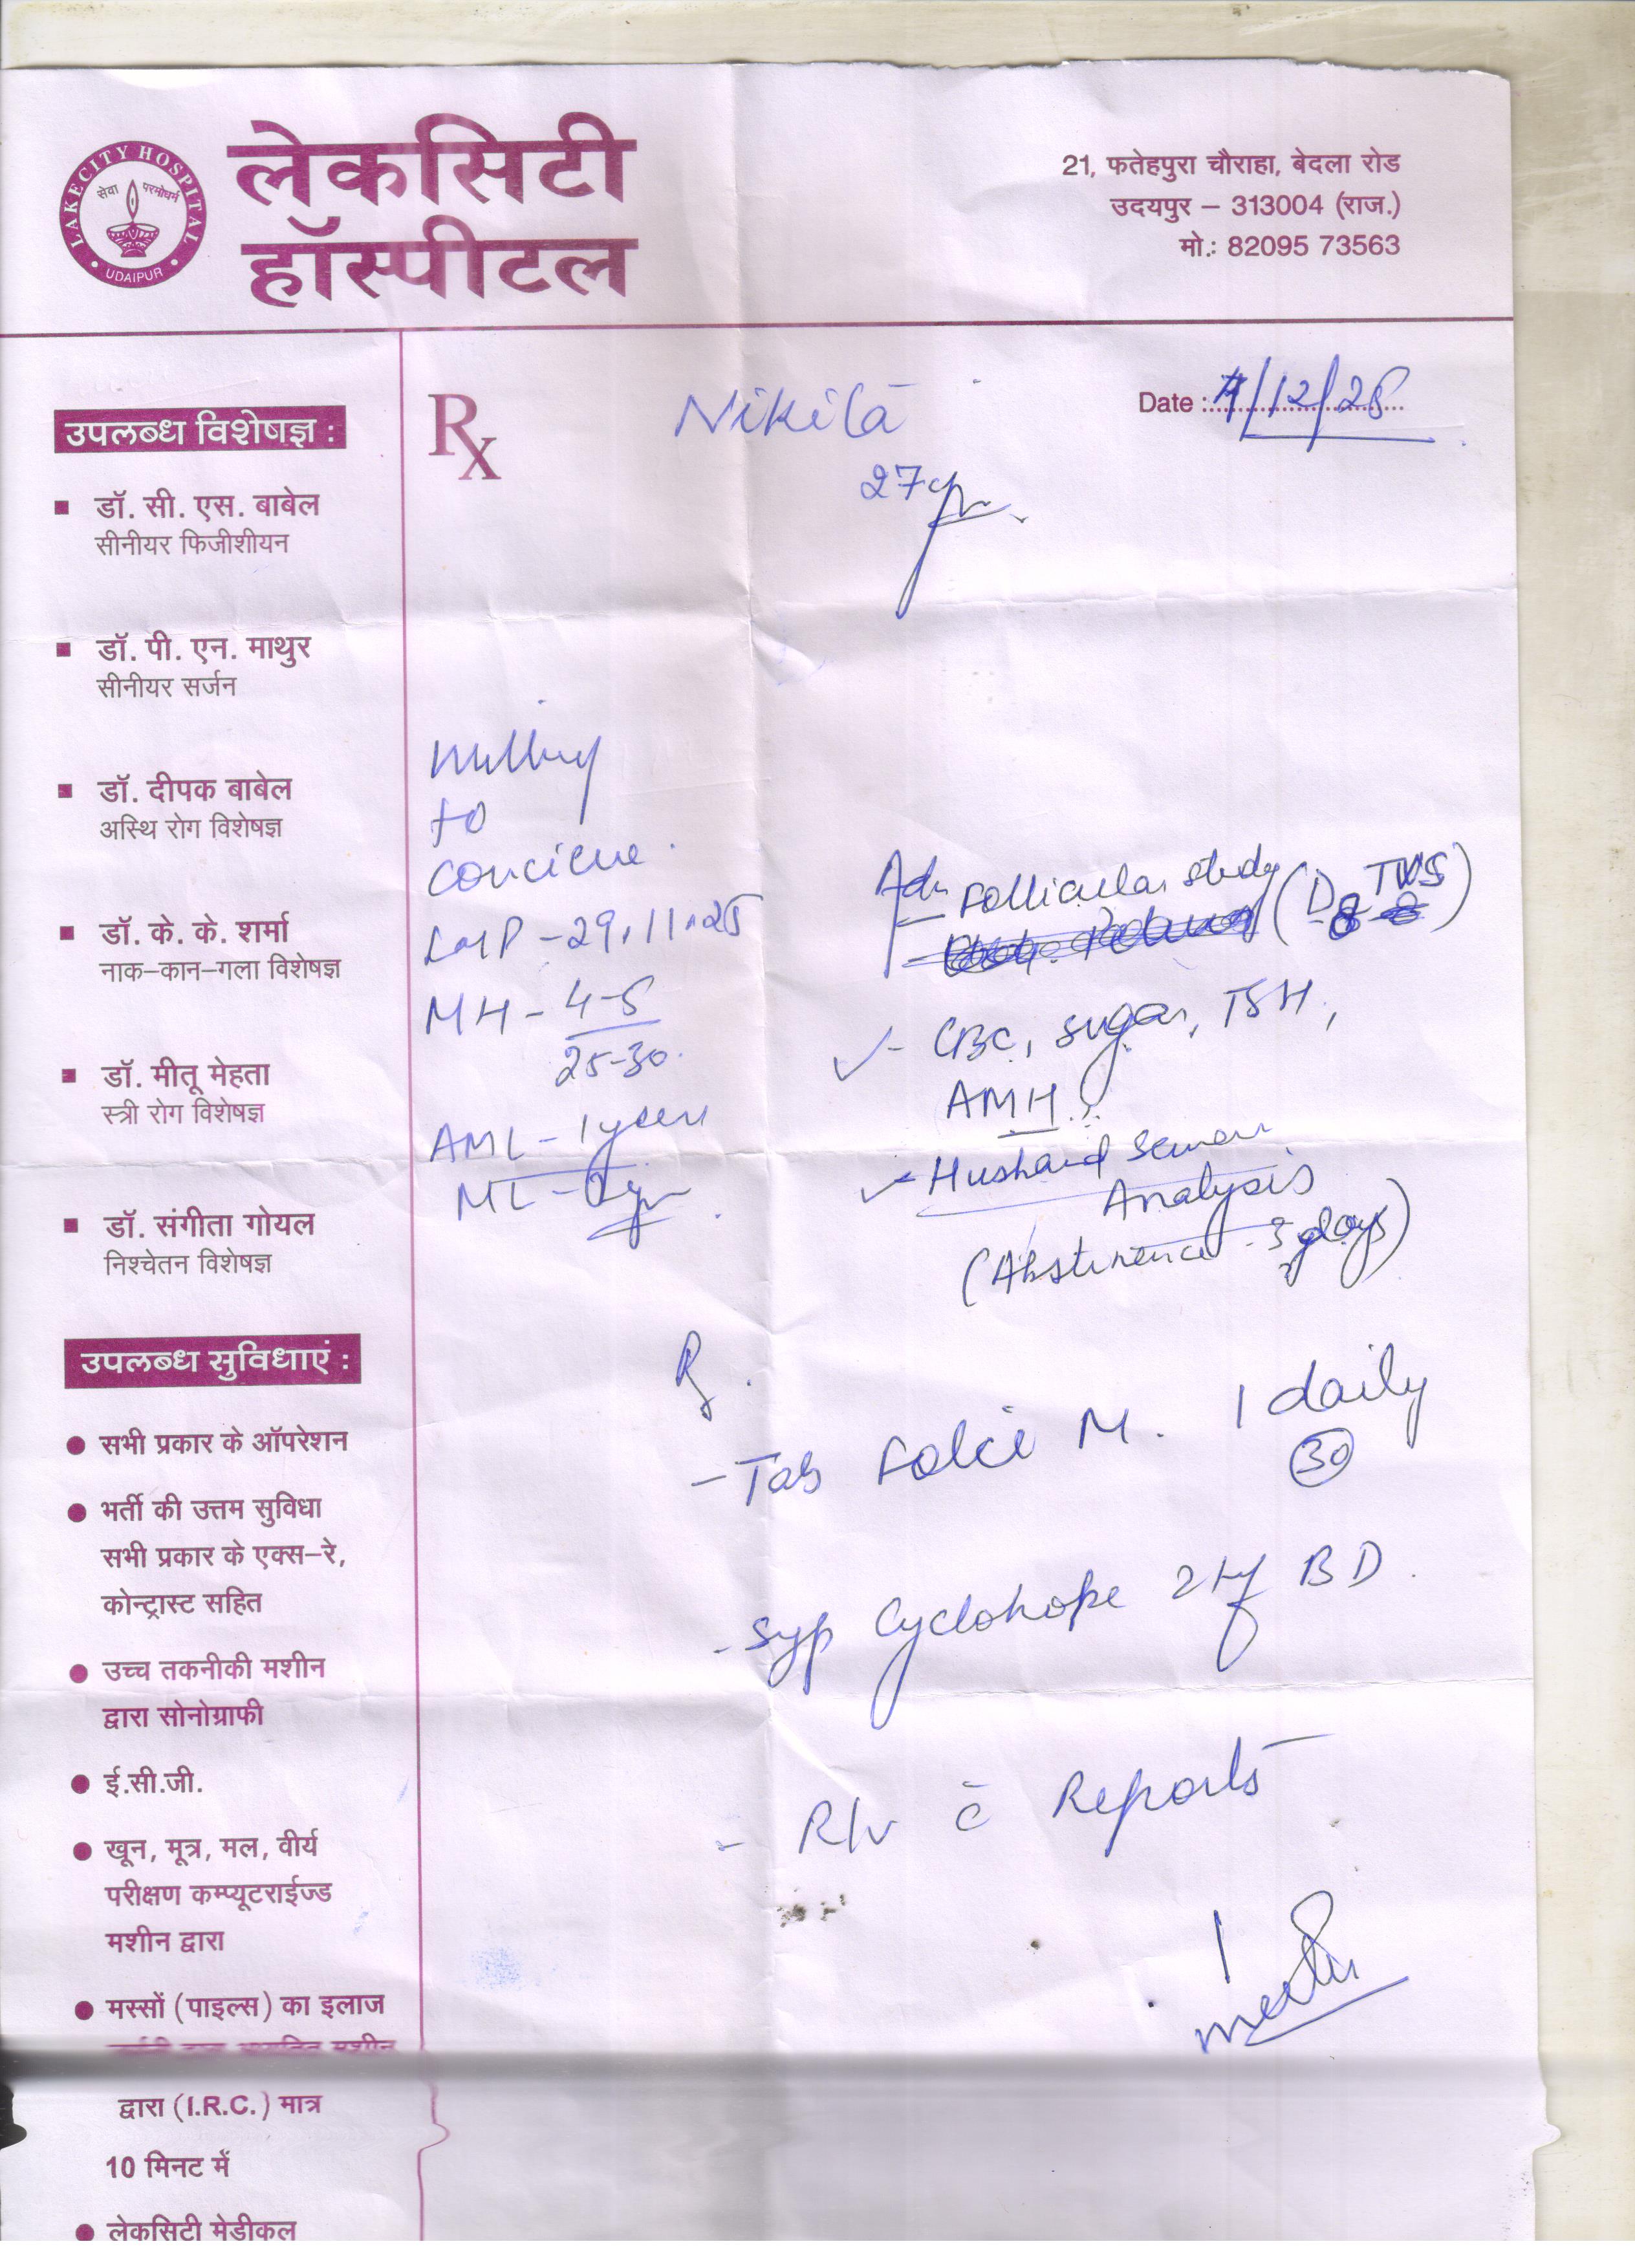 LAKECITY HOSPITAL
सेवा परमोधर्म
UDAIPUR
लेकसिटी
हॉस्पीटल
21, फतेहपुरा चौराहा, बेदला रोड
उदयपुर – 313004 (राज.)
मो.: 82095 73563
Rx
Nikita
Date : /12/25
27yr
उपलब्ध विशेषज्ञ :
डॉ. सी. एस. बाबेल
सीनीयर फिजीशीयन
डॉ. पी. एन. माथुर
सीनीयर सर्जन
डॉ. दीपक बाबेल
अस्थि रोग विशेषज्ञ
डॉ. के. के. शर्मा
नाक–कान–गला विशेषज्ञ
डॉ. मीतू मेहता
स्त्री रोग विशेषज्ञ
डॉ. संगीता गोयल
निश्चेतन विशेषज्ञ
उपलब्ध सुविधाएं :
सभी प्रकार के ऑपरेशन
भर्ती की उत्तम सुविधा
सभी प्रकार के एक्स–रे,
कोन्ट्रास्ट सहित
उच्च तकनीकी मशीन
द्वारा सोनोग्राफी
ई.सी.जी.
खून, मूत्र, मल, वीर्य
परीक्षण कम्प्यूटराईज्ड
मशीन द्वारा
मस्सों (पाइल्स) का इलाज
द्वारा (I.R.C.) मात्र
10 मिनट में
लेकसिटी मेडीकल
to
LMP - 29.11.25
MH - 4-5
25-30.
AML - 1 year
ML -
Adv
- Follicular study (D TVS)
- CBC, sugar, TSH,
AMH
- Husband Semen
Analysis
(Abstinence - 3 days)
Rx
- Tab Folci M. 1 daily
30
- Syp Cyclohope 2tsf BD.
- R/v c̄ Reports
Meetu